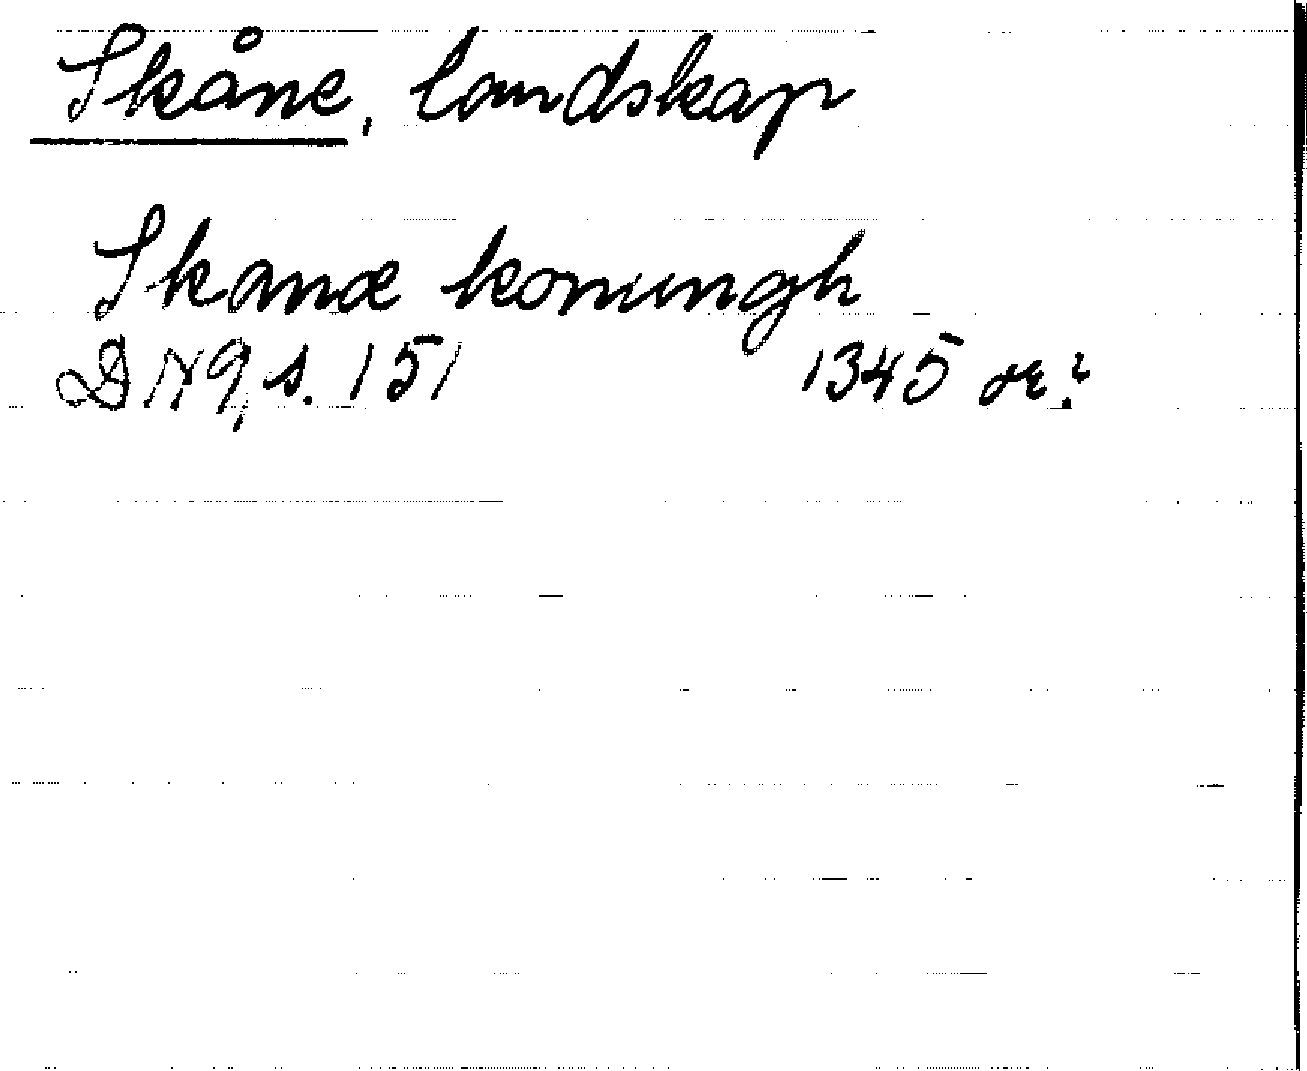 Skåne, landskap
Skanæ konungh
DN 9, s. 151 1345 or.?